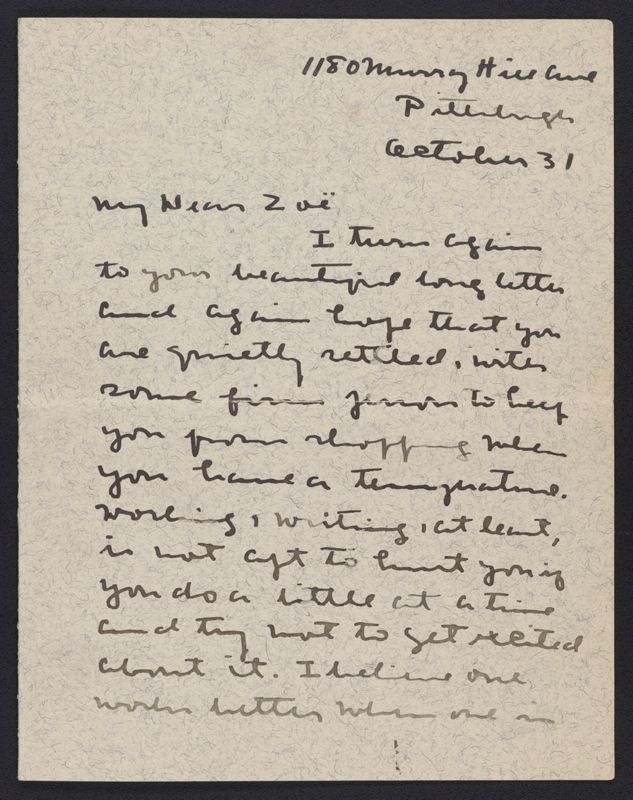 1180 Murray Hill Ave
Pittsburgh
October 31
My Dear Zoë
I turn again
to your beautiful long letter
and again hope that you
are quietly settled, with
some firm person to keep
you from shopping when
you have a temperature.
Working, writing, at least,
is not apt to hurt you if
you do a little at a time
and try not to get excited
about it. I believe one
works better when one is